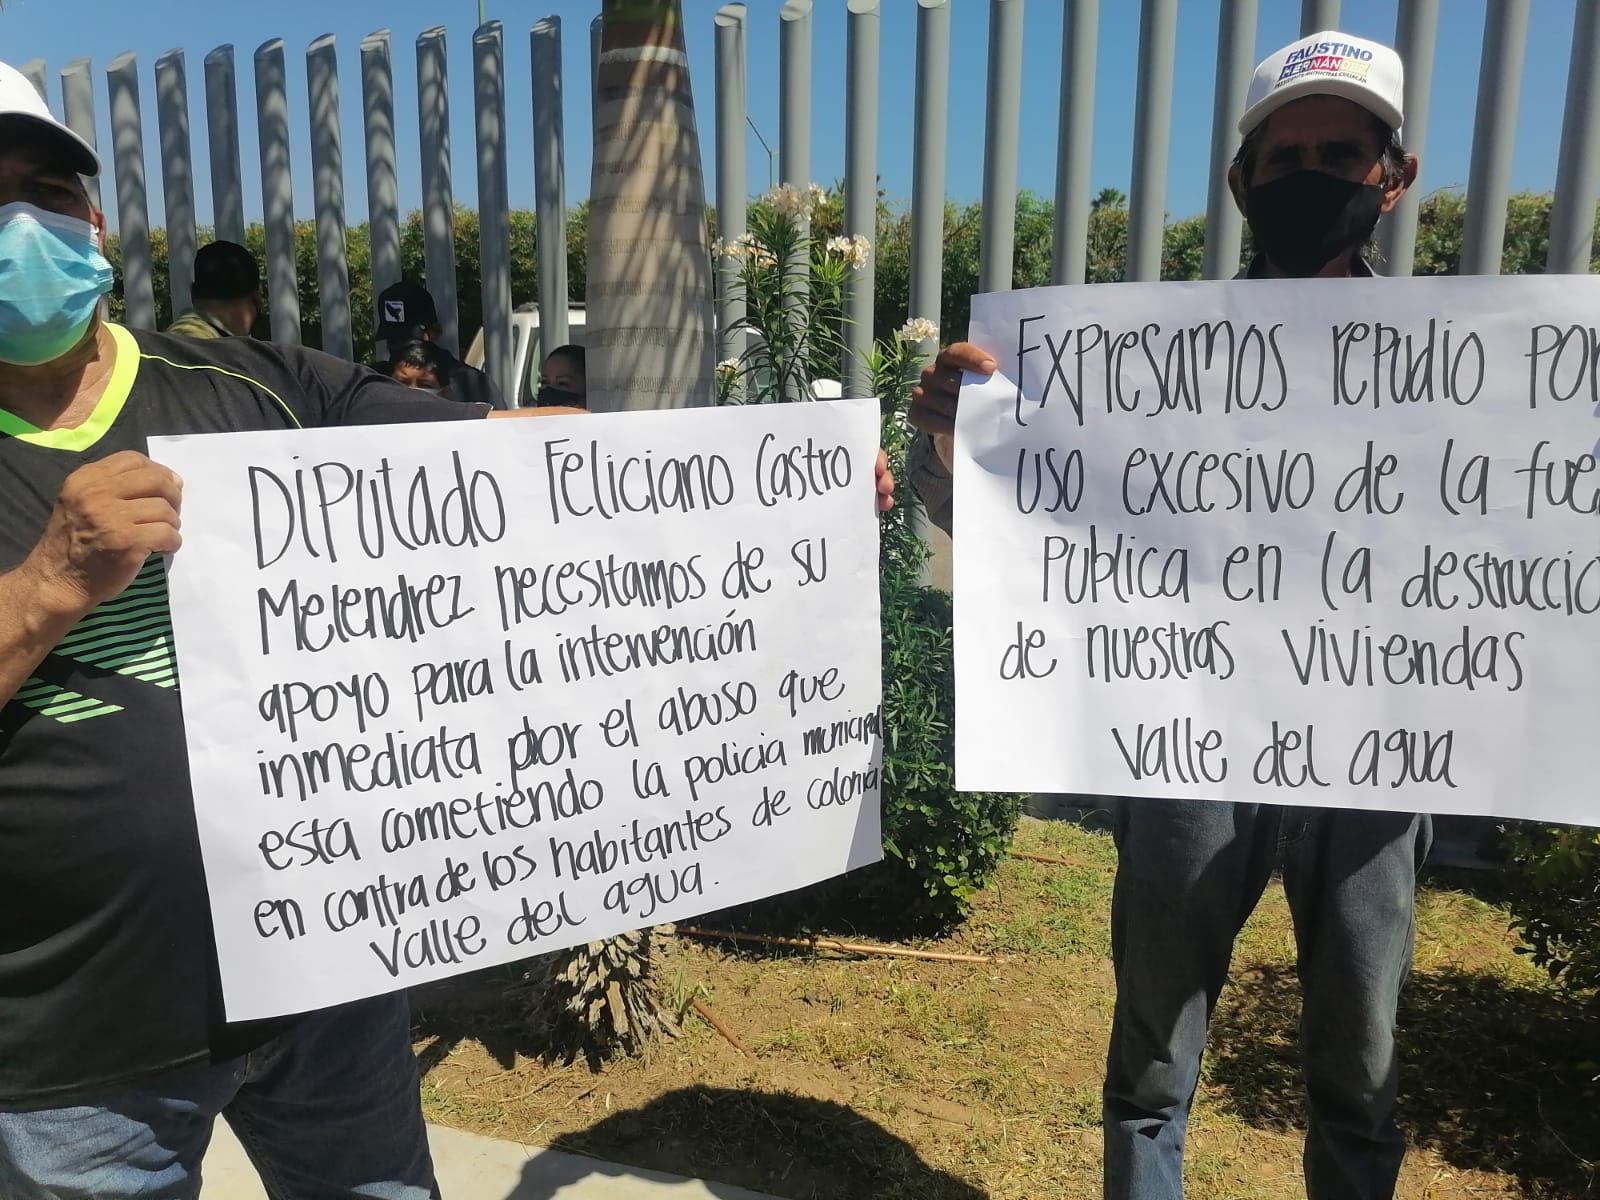 FAUSTINO
HERNÁNDEZ
PRESIDENTE MUNICIPAL CULIACÁN
DiPUtado Feliciano Castro
Melendrez necesitamos de su
apoyo para la intervención
inmediata por el abuso que
esta cometiendo la policia municipal
en contra de los habitantes de colonia
Valle del agua.
Expresamos repudio por
uso excesivo de la fue
publica en la destruccio
de nuestras viviendas
Valle del agua